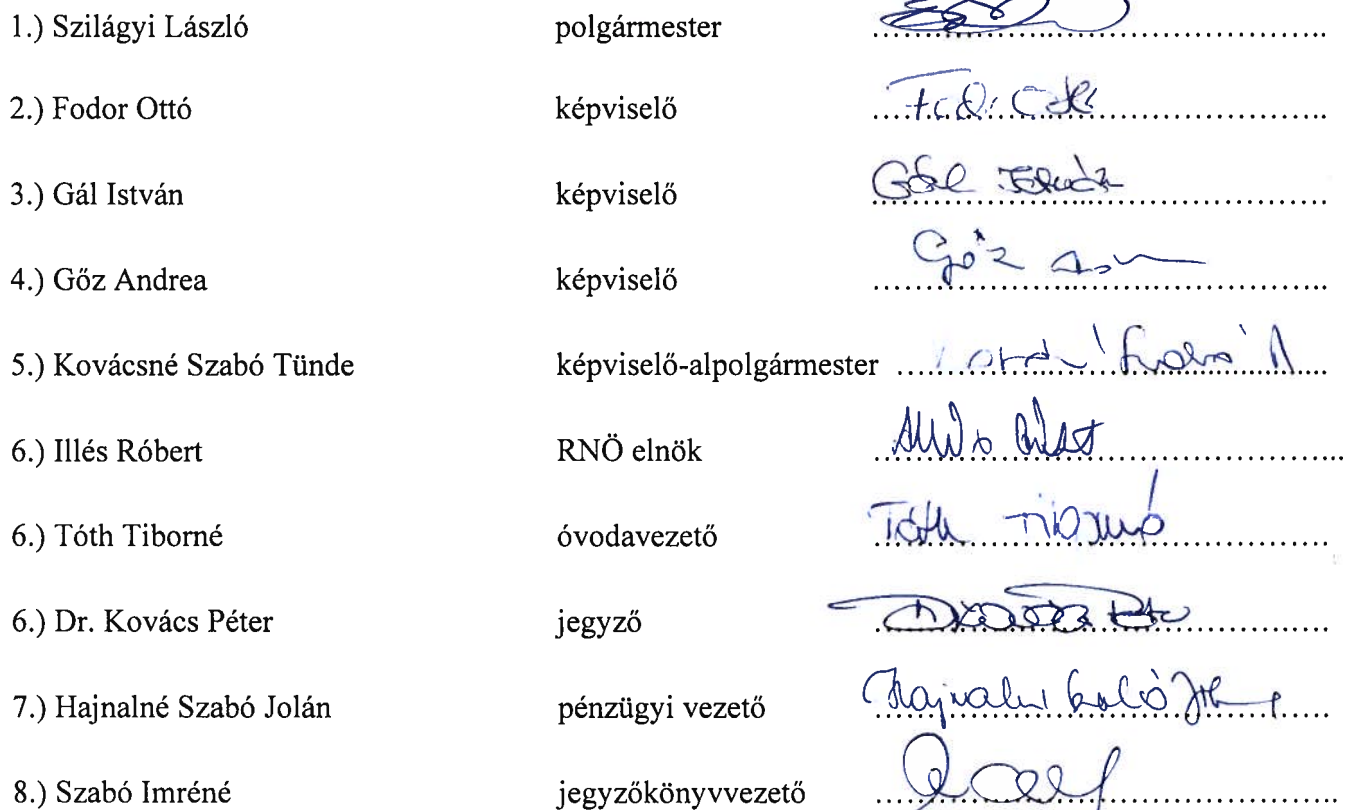 1.) Szilágyi László polgármester ……………………………………..
2.) Fodor Ottó képviselő ……………………………………..
3.) Gál István képviselő Gál István
4.) Gőz Andrea képviselő Gőz
5.) Kovácsné Szabó Tünde képviselő-alpolgármester Szabó
6.) Illés Róbert RNÖ elnök
6.) Tóth Tiborné óvodavezető Tóth Tiborné
6.) Dr. Kovács Péter jegyző
7.) Hajnalné Szabó Jolán pénzügyi vezető Hajnalné Szabó
8.) Szabó Imréné jegyzőkönyvvezető